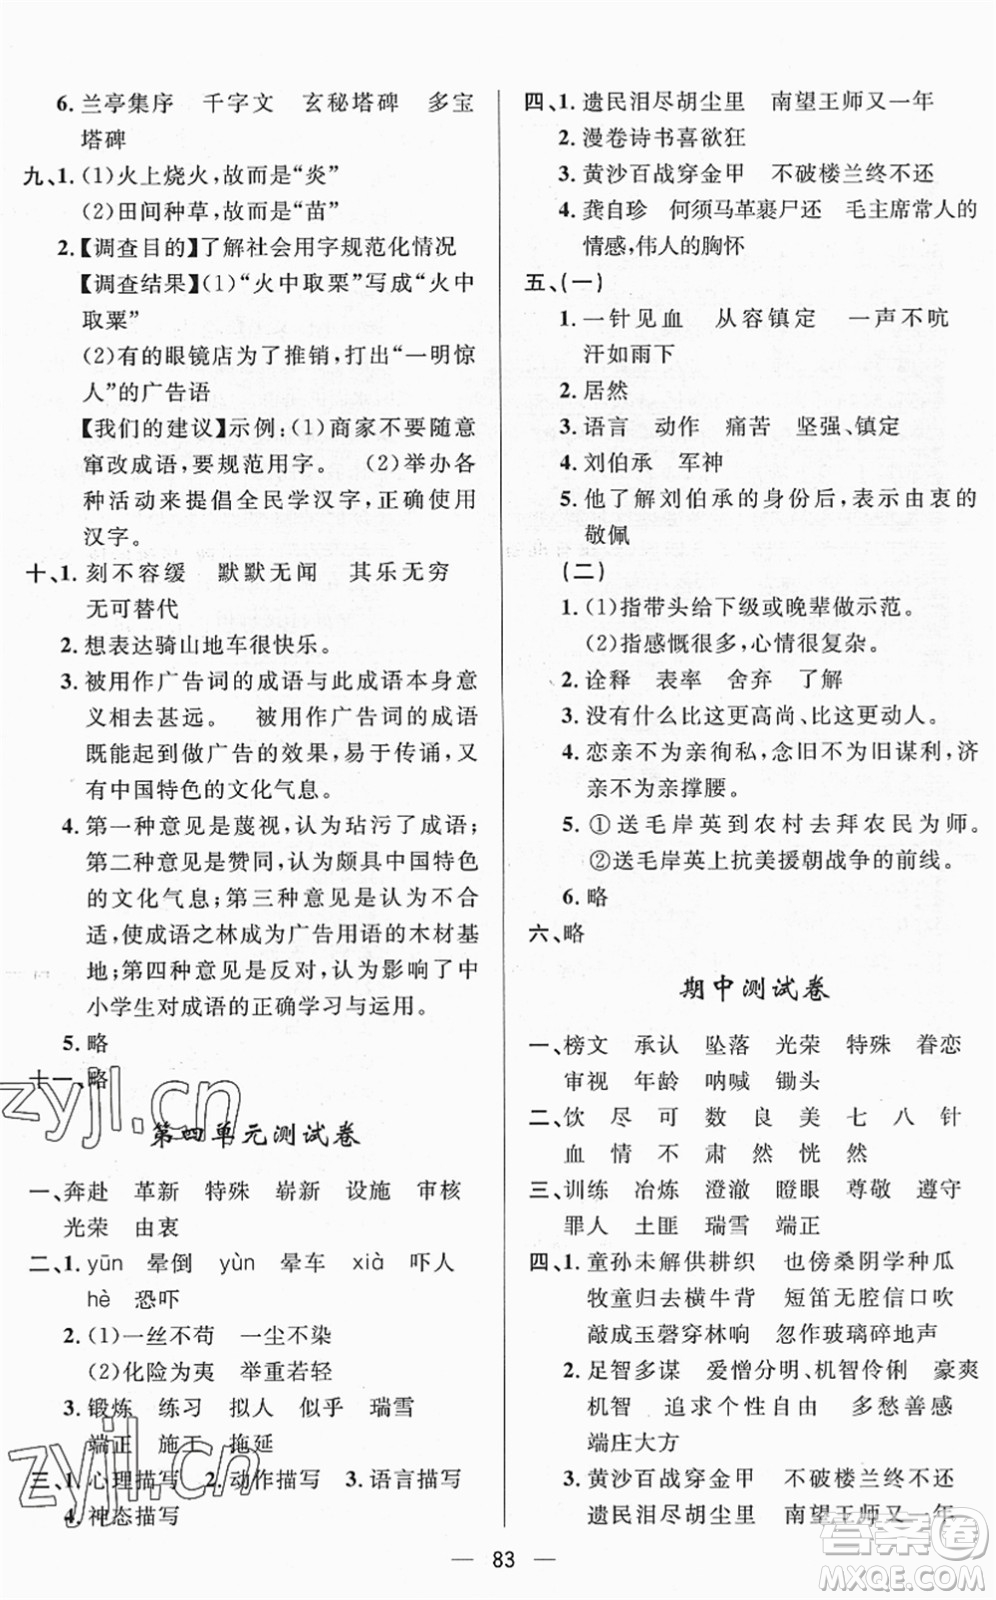 6. 兰亭集序　千字文　玄秘塔碑　多宝
塔碑
九、1. (1)火上烧火,故而是“炎”
(2)田间种草,故而是“苗”
2.【调查目的】了解社会用字规范化情况
【调查结果】(1)“火中取栗”写成“火中
取粟”
(2)有的眼镜店为了推销,打出“一明惊
人”的广告语
【我们的建议】示例:(1)商家不要随意
窜改成语,要规范用字。　(2)举办各
种活动来提倡全民学汉字,正确使用
汉字。
十、1. 刻不容缓　默默无闻　其乐无穷
无可替代
2. 想表达骑山地车很快乐。
3. 被用作广告词的成语与此成语本身意
义相去甚远。　被用作广告词的成语
既能起到做广告的效果,易于传诵,又
有中国特色的文化气息。
4. 第一种意见是蔑视,认为玷污了成语;
第二种意见是赞同,认为颇具中国特色
的文化气息;第三种意见是认为不合
适,使成语之林成为广告用语的木材基
地;第四种意见是反对,认为影响了中
小学生对成语的正确学习与运用。
5. 略
十一、略
第四单元测试卷
一、奔赴　革新　特殊　崭新　设施　审核
光荣　由衷
二、1. yūn　晕倒　yùn　晕车　xià　吓人
hè　恐吓
2. (1)一丝不苟　一尘不染
(2)化险为夷　举重若轻
3. 锻炼　练习　拟人　似乎　瑞雪
端正　施工　拖延
三、1. 心理描写　2. 动作描写　3. 语言描写
4. 神态描写
四、1. 遗民泪尽胡尘里　南望王师又一年
2. 漫卷诗书喜欲狂
3. 黄沙百战穿金甲　不破楼兰终不还
4. 龚自珍　何须马革裹尸还　毛主席常人的
情感,伟人的胸怀
五、(一)
1. 一针见血　从容镇定　一声不吭
汗如雨下
2. 居然
3. 语言　动作　痛苦　坚强、镇定
4. 刘伯承　军神
5. 他了解刘伯承的身份后,表示由衷的
敬佩
(二)
1. (1)指带头给下级或晚辈做示范。
(2)指感慨很多,心情很复杂。
2. 诠释　表率　舍弃　了解
3. 没有什么比这更高尚、比这更动人。
4. 恋亲不为亲徇私,念旧不为旧谋利,济
亲不为亲撑腰。
5. ①送毛岸英到农村去拜农民为师。
②送毛岸英上抗美援朝战争的前线。
6. 略
六、略
期中测试卷
一、榜文　承认　坠落　光荣　特殊　眷恋
审视　年龄　呐喊　锄头
二、饮　尽　可　数　良　美　七　八　针
血　情　不　肃　然　恍　然
三、训练　冶炼　澄澈　瞪眼　尊敬　遵守
罪人　土匪　瑞雪　端正
四、1. 童孙未解供耕织　也傍桑阴学种瓜
牧童归去横牛背　短笛无腔信口吹
敲成玉磬穿林响　忽作玻璃碎地声
2. 足智多谋　爱憎分明、机智伶俐　豪爽
机智　追求个性自由　多愁善感
端庄大方
3. 黄沙百战穿金甲　不破楼兰终不还
遗民泪尽胡尘里　南望王师又一年
— 83 —
zyjl.cn
zyjl.cn
答案圈
MXQE.COM